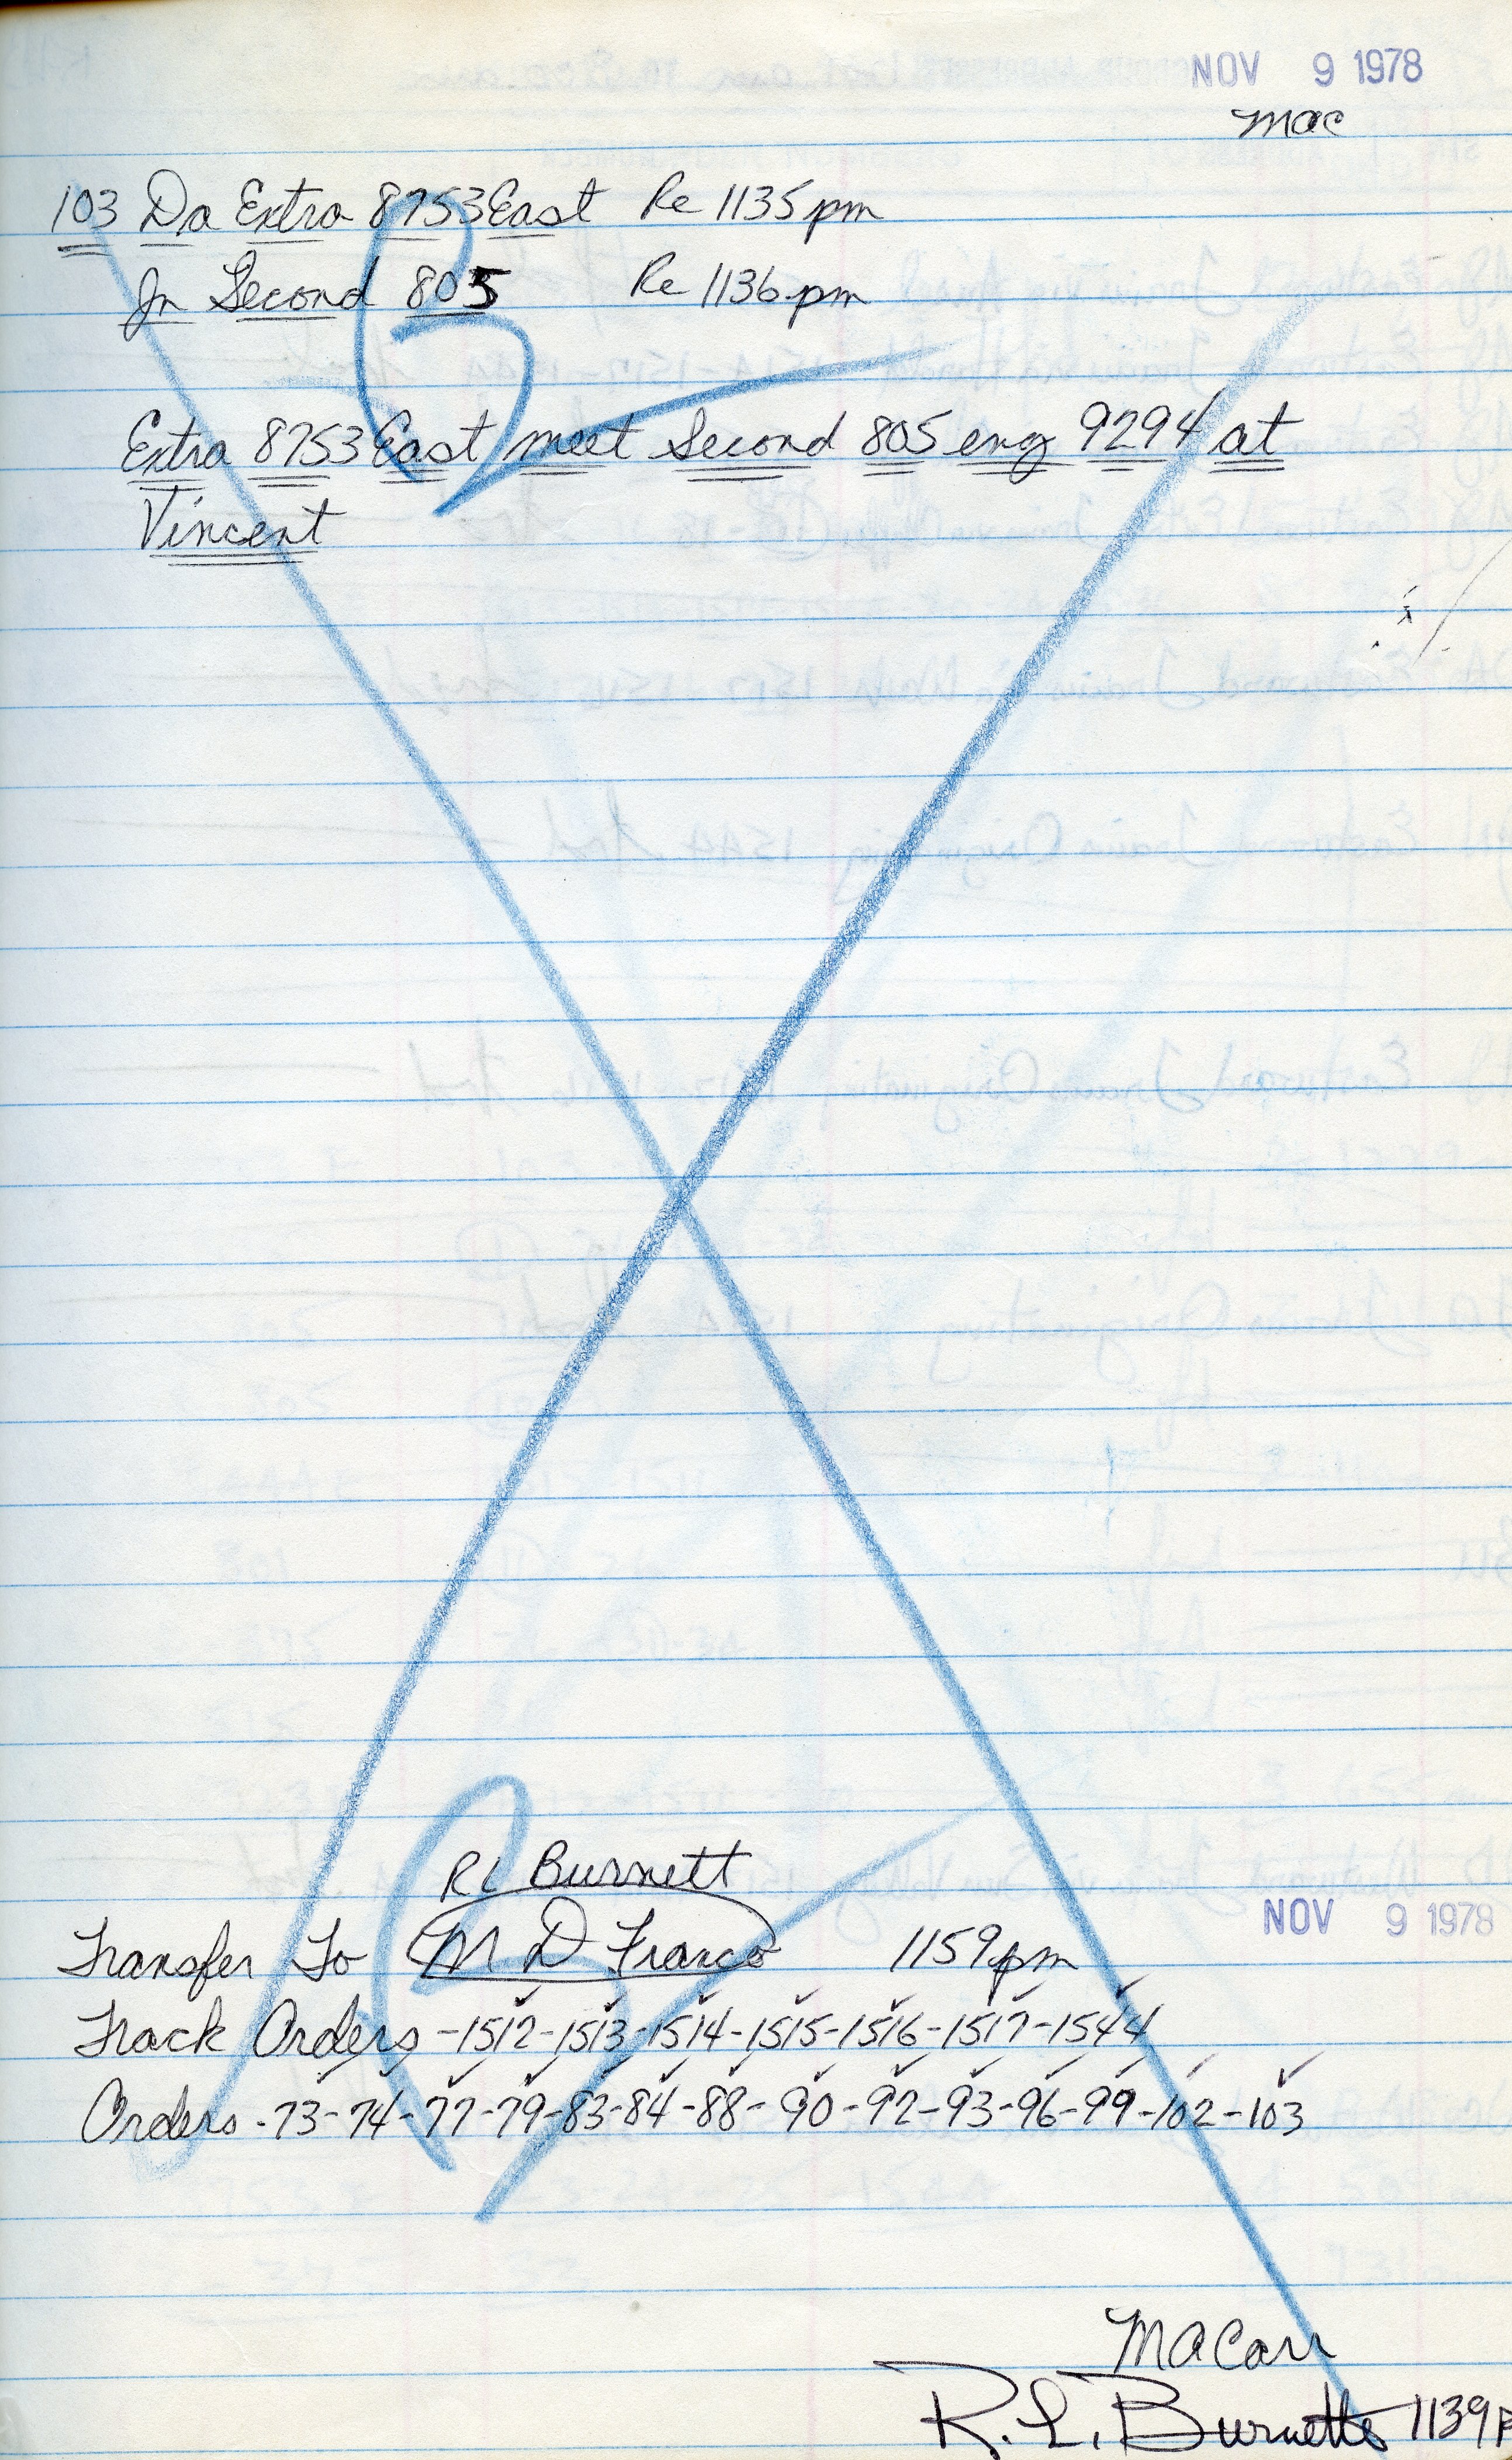 NOV 9 1978
mac
103 Da Extra 8753 East Re 1135pm
Jn Second 805 Re 1136pm
Extra 8753 East meet Second 805 eng 9294 at
Vincent
RL Burnett
Transfer To M D Franco 1159pm
NOV 9 1978
Track Orders -1512-1513-1514-1515-1516-1517-1544
Orders -73-74-77-79-83-84-88-90-92-93-96-99-102-103
MACarr
R. L. Burnette 1139P